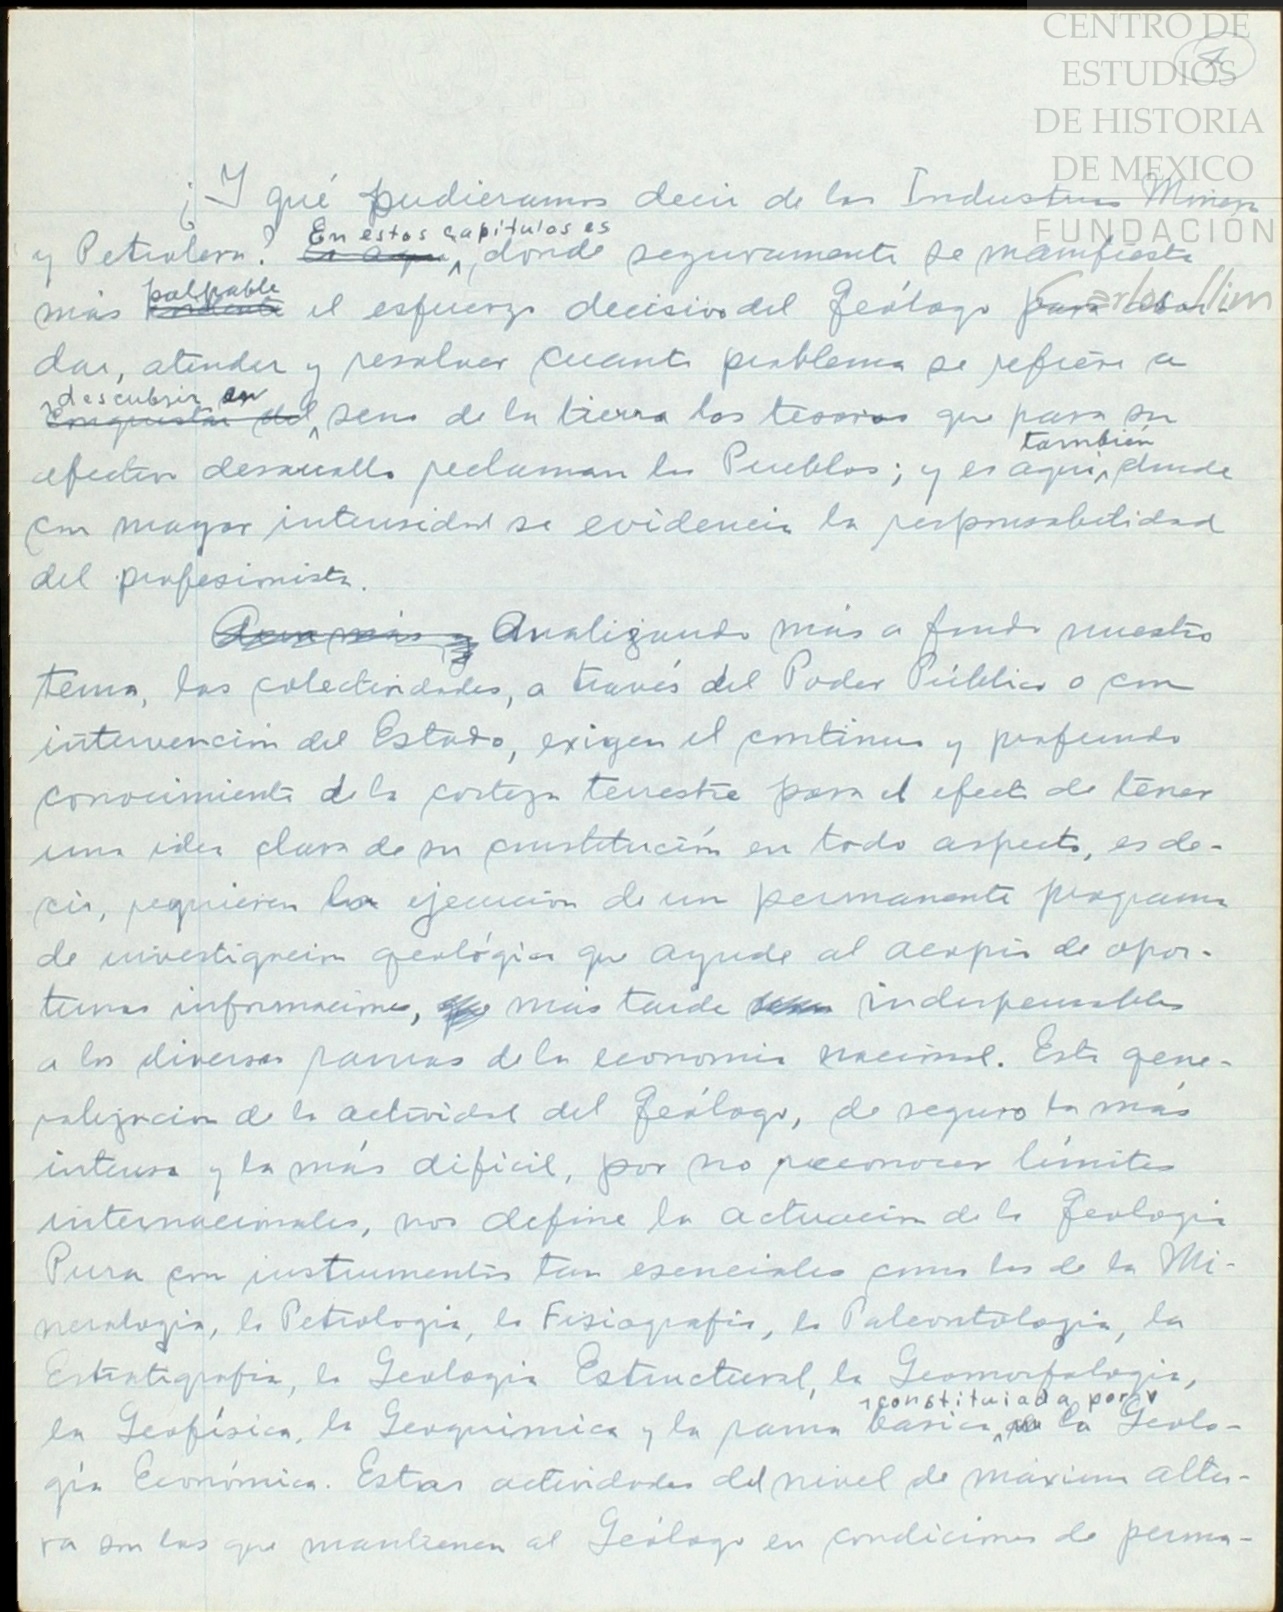 CENTRO DE
ESTUDIOS
DE HISTORIA
DE MEXICO
FUNDACIÓN
Carlos Slim
4
¿Y qué pudieramos decir de las Industrias Minera
y Petrolera? En estos capítulos es donde seguramente se manifiesta
más palpable el esfuerzo decisivo del Geólogo para abor-
dar, atender y resolver cuanto problema se refiere a
descubrir en seno de la tierra los tesoros que para su
efectivo desarrollo reclaman los Pueblos; y es aquí también donde
con mayor intensidad se evidencia la responsabilidad
del profesionista.
Analizando más a fondo nuestro
tema, las colectividades, a través del Poder Público o con
intervención del Estado, exigen el continuo y profundo
conocimiento de la corteza terrestre para el efecto de tener
una idea clara de su constitución en todo aspecto, es de-
cir, requieren la ejecución de un permanente programa
de investigación geológica que ayude al acopio de opor-
tunas informaciones, más tarde indispensables
a las diversas ramas de la economía nacional. Esta gene-
ralización de la actividad del Geólogo, de seguro la más
intensa y la más dificil, por no reconocer límites
internacionales, nos define la actuación de la Geología
Pura con instrumentos tan esenciales como los de la Mi-
neralogía, la Petrología, la Fisiografía, la Paleontología, la
Estratigrafía, la Geología Estructural, la Geomorfología,
la Geofísica, la Geoquímica y la rama básica constituiada por la Geolo-
gía Económica. Estas actividades del nivel de máxima altu-
ra son las que mantienen al Geólogo en condiciones de perma-